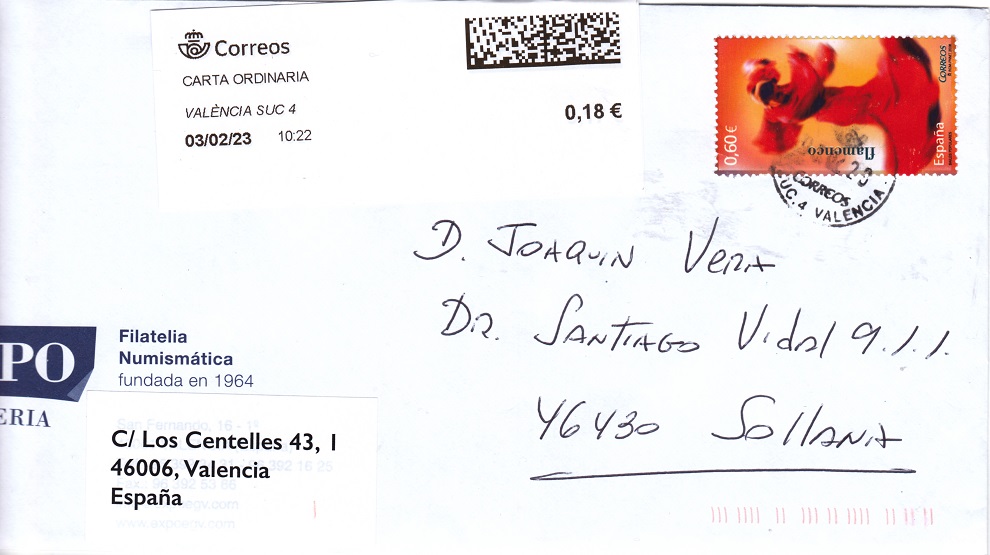 Correos
CARTA ORDINARIA
VALÈNCIA SUC 4
03/02/23 10:22
0,18 €
CORREOS
0,60 €
flamenco
España
CORREOS
SUC. 4 VALENCIA
D. JOAQUIN VERA
DR. SANTIAGO Vidal 9.1.1.
46430 Sollana
PO
ERIA
Filatelia
Numismática
fundada en 1964
San Fernando, 16 - 1º
C/ Los Centelles 43, 1
46006, Valencia
España
www.expocegv.com